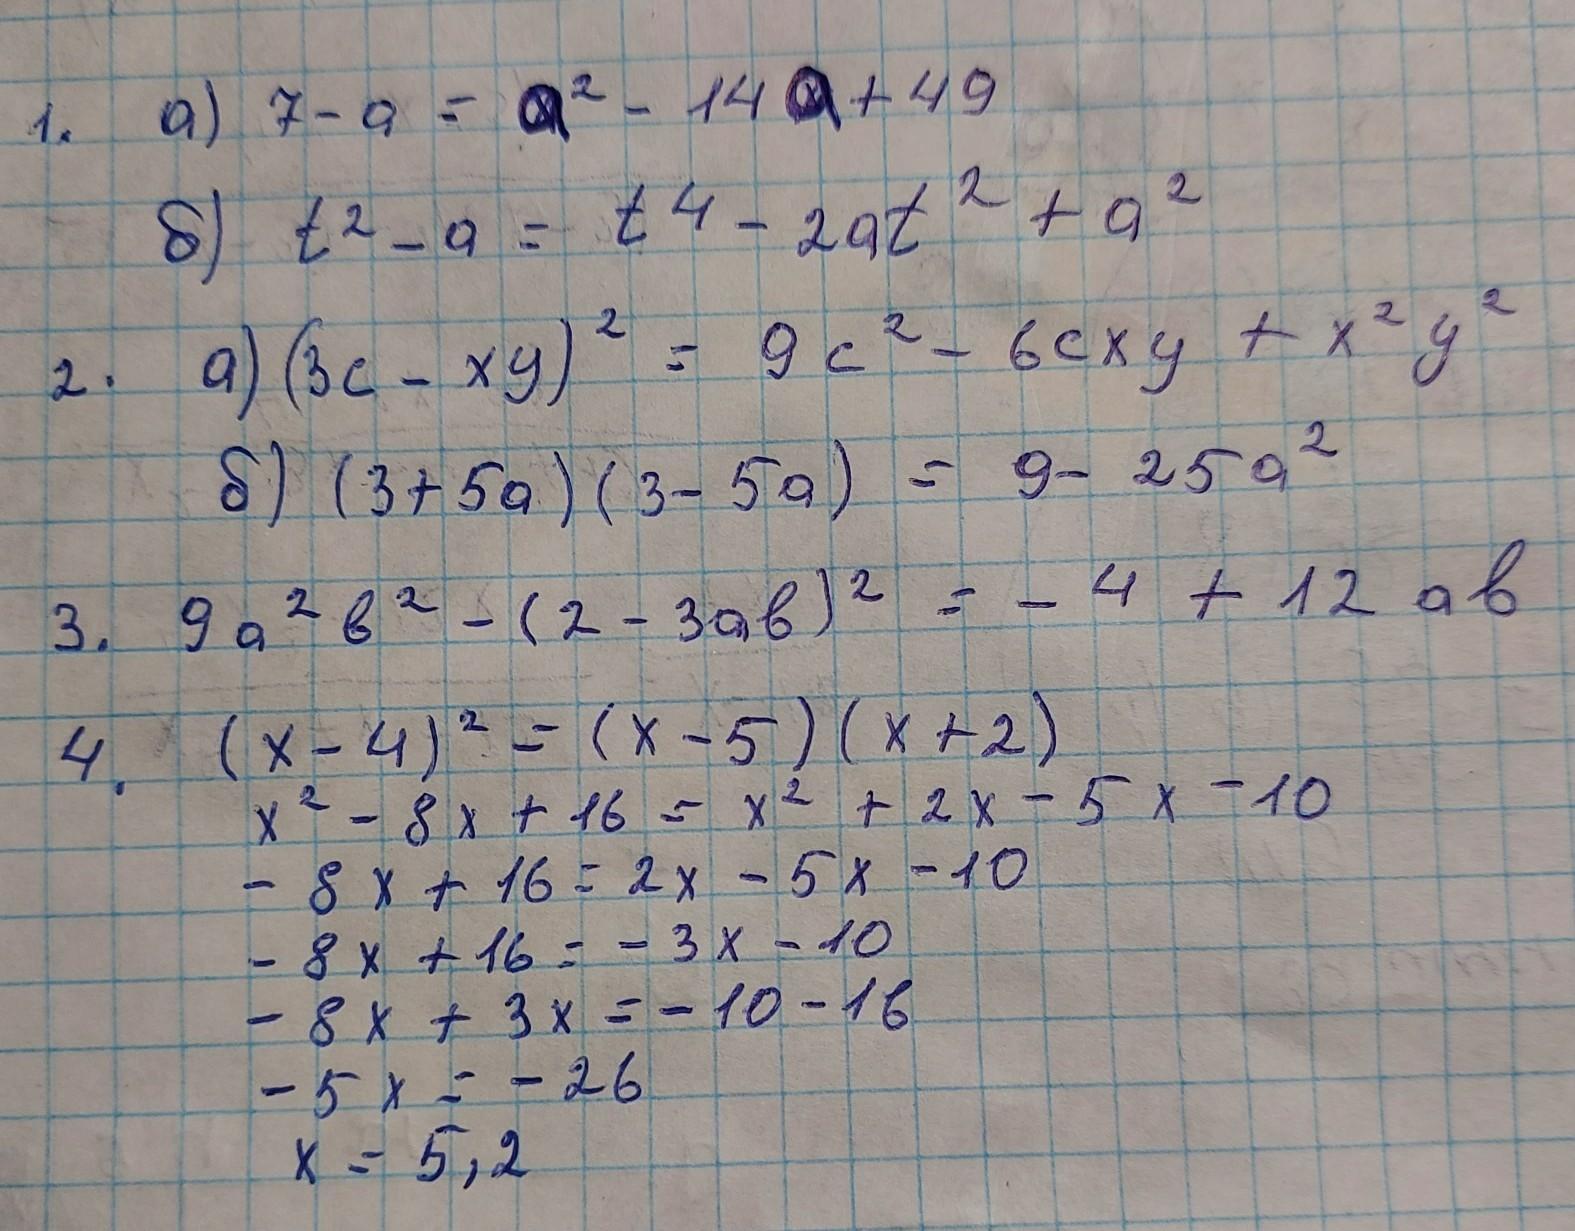 1. а) 7 - a = a² - 14a + 49
б) t² - a = t⁴ - 2at² + a²
2. а) (3c - xy)² = 9c² - 6cxy + x²y²
б) (3 + 5a)(3 - 5a) = 9 - 25a²
3. 9a²b² - (2 - 3ab)² = - 4 + 12ab
4. (x - 4)² = (x - 5)(x + 2)
x² - 8x + 16 = x² + 2x - 5x - 10
- 8x + 16 = 2x - 5x - 10
- 8x + 16 = - 3x - 10
- 8x + 3x = - 10 - 16
- 5x = - 26
x = 5,2